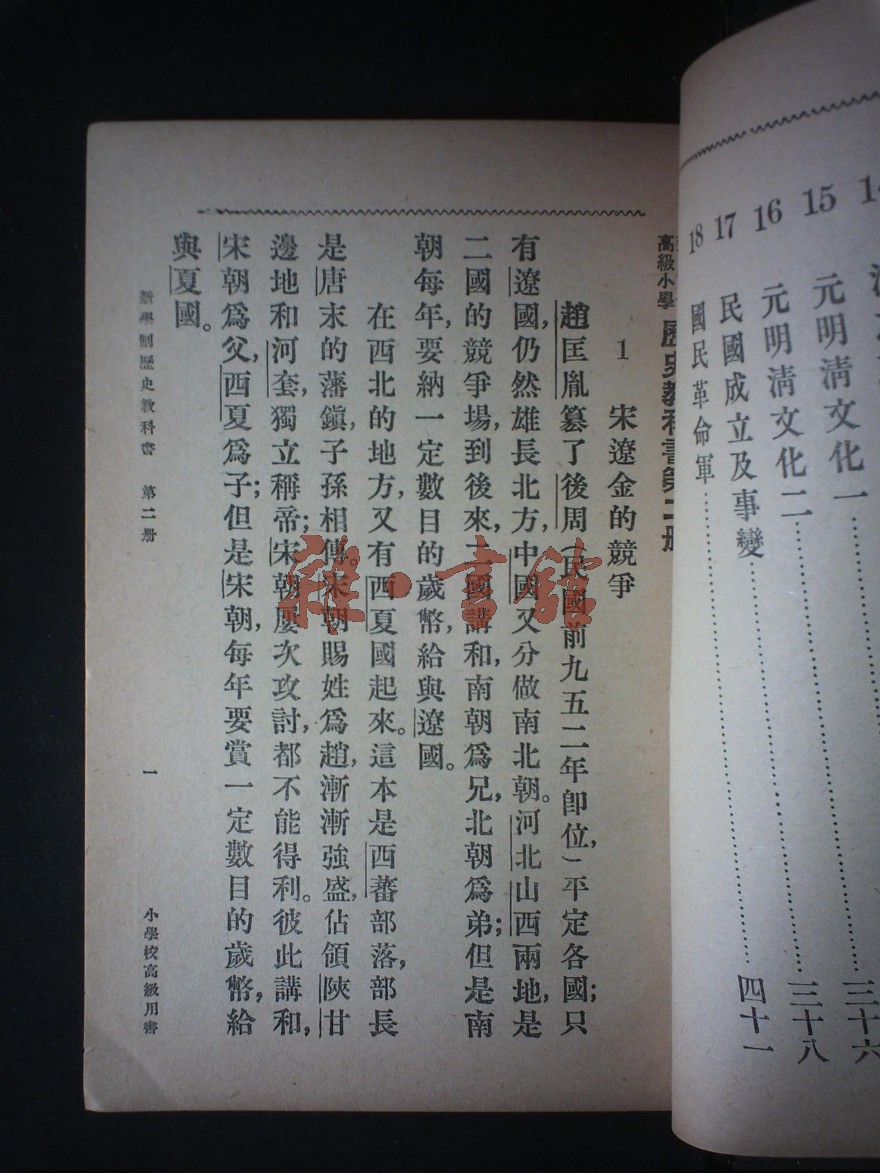 14
15 元明清文化一……三十六
16 元明清文化二……三十八
17 民國成立及事變……四十一
18 國民革命軍……
高級小學 歷史教科書第二册
1 宋遼金的競爭
趙匡胤簒了後周(民國前九五二年卽位,)平定各國;只
有遼國,仍然雄長北方,中國又分做南北朝。河北山西兩地,是
二國的競爭場,到後來,二國講和,南朝爲兄,北朝爲弟;但是南
朝每年,要納一定數目的歲幣,給與遼國。
在西北的地方,又有西夏國起來。這本是西蕃部落,部長
是唐末的藩鎭,子孫相傳。宋朝賜姓爲趙,漸漸強盛,佔領陝甘
邊地和河套,獨立稱帝;宋朝屢次攻討,都不能得利。彼此講和,
宋朝爲父,西夏爲子;但是宋朝,每年要賞一定數目的歲幣,給
與夏國。
新學制歷史教科書 第二册 一 小學校高級用書
雜·書館